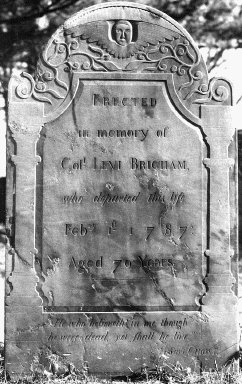 ERECTED
in memory of
Colº LEVI BRIGHAM,
who departed this life
Febʸ 1ˢᵗ 1787:
Aged 70 Years.
He who believeth in me though
he were dead yet shall he live